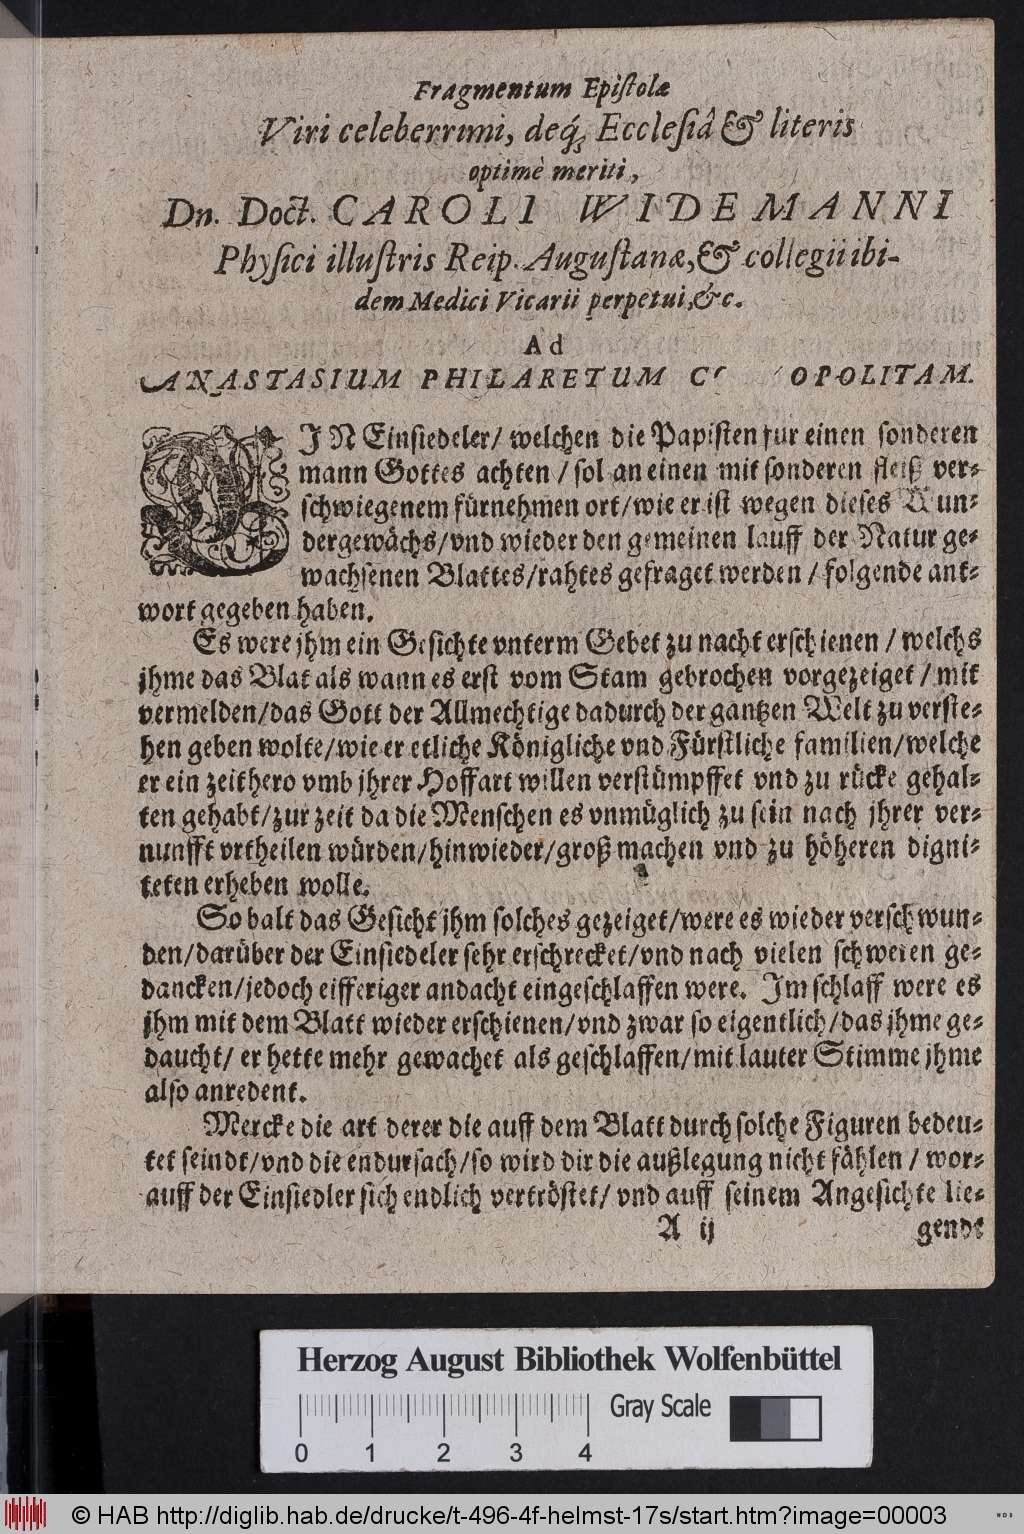 Fragmentum Epistolæ
Viri celeberrimi, deq́; Ecclesiâ & literis
optimè meriti,
Dn. Doct. CAROLI WIDEMANNI
Physici illustris Reip. Augustanæ, & collegii ibi-
dem Medici Vicarii perpetui, &c.
Ad
ANASTASIUM PHILARETUM C OPOLITAM.
EJN Einsiedeler/ welchen die Papisten fur einen sonderen
mann Gottes achten / sol an einen mit sonderen fleiß ver-
schwiegenem fürnehmen ort/wie er ist wegen dieses Wun-
dergewächs/vnd wieder den gemeinen lauff der Natur ge-
wachsenen Blattes/rahtes gefraget werden / folgende ant-
wort gegeben haben.
Es were jhm ein Gesichte vnterm Gebet zu nacht erschienen / welchs
jhme das Blat als wann es erst vom Stam gebrochen vorgezeiget / mit
vermelden/das Gott der Allmechtige dadurch der gantzen Welt zu verste-
hen geben wolte/wie er etliche Königliche vnd Fürstliche familien/welche
er ein zeithero vmb jhrer Hoffart willen verstümpffet vnd zu rücke gehal-
ten gehabt/zur zeit da die Menschen es vnmüglich zu sein nach jhrer ver-
nunfft vrtheilen würden/hinwieder/groß machen vnd zu höheren digni-
teten erheben wolle.
So balt das Gesicht jhm solches gezeiget/were es wieder verschwun-
den/darüber der Einsiedeler sehr erschrecket/vnd nach vielen schweren ge-
dancken/jedoch eifferiger andacht eingeschlaffen were. Im schlaff were es
jhm mit dem Blatt wieder erschienen/vnd zwar so eigentlich/das jhme ge-
daucht/ er hette mehr gewachet als geschlaffen/mit lauter Stimme jhme
also anredent.
Mercke die art derer die auff dem Blatt durch solche Figuren bedeu-
tet seindt/vnd die endursach/so wird dir die außlegung nicht fählen / wor-
auff der Einsiedler sich endlich vertröstet/ vnd auff seinem Angesichte lie-
A ij gende
Herzog August Bibliothek Wolfenbüttel
Gray Scale
0 1 2 3 4
© HAB http://diglib.hab.de/drucke/t-496-4f-helmst-17s/start.htm?image=00003
HAB